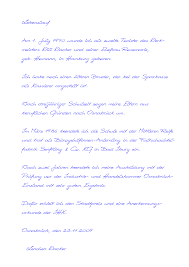 Lebenslauf
Am 1. July 1970 wurde ich als zweite Tochter des Rech-
meisters Ralf Ranke und seiner Ehefrau Rosemarie,
geb. Hermann, in Hamburg geboren.
Ich habe noch einen älteren Bruder, der bei der Sparkasse
als Kassierer angestellt ist.
Nach dreijähriger Schulzeit zogen meine Eltern aus
beruflichen Gründen nach Osnabrück um.
Im März 1986 beendete ich die Schule mit der Mittleren Reife
und trat als Bürogehilfin in der
fabrik & Co. KG in Bad Iburg ein.
Nach zwei Jahren beendete ich meine Ausbildung mit der
Prüfung vor der Industrie- und Handelskammer Osnabrück-
Emsland mit sehr gutem Ergebnis.
Dafür erhielt ich den Stadtpreis und eine Anerkennungs-
urkunde der IHK.
Osnabrück, den 23.11.2004
Ranke